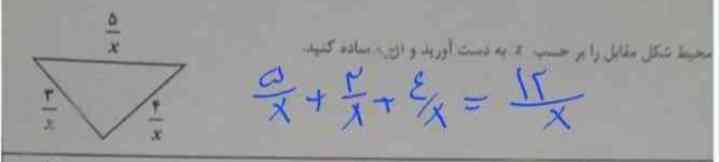 ۵/x
محیط شکل مقابل را بر حسب x به دست آورید و آن را ساده کنید.
۳/x
۴/x
۵/x + ۳/x + ٤/x = ۱۲/x